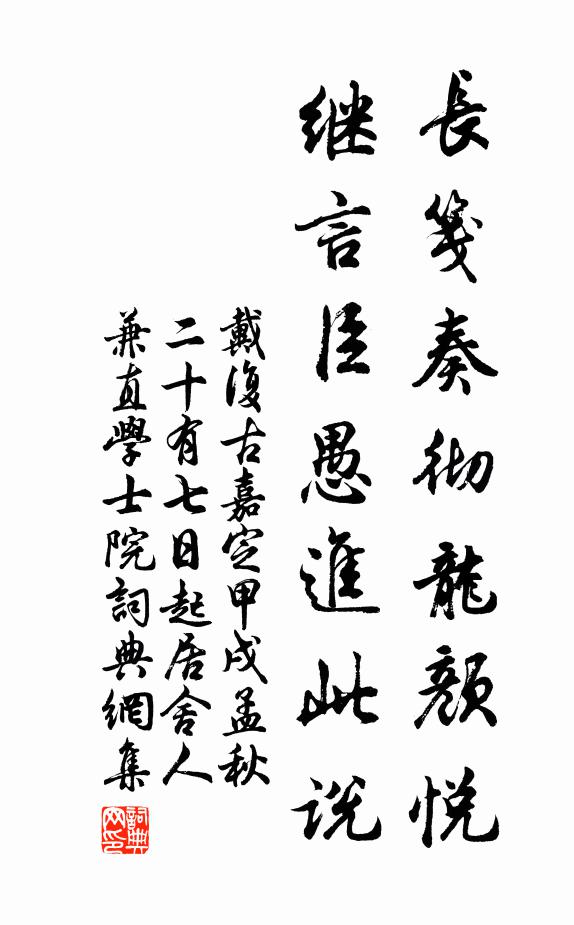 長箋奏彻龍顔悦
继言臣愚進此説
戴復古嘉定甲戌孟秋
二十有七日起居舍人
兼直學士院詞典網集
詞典网印